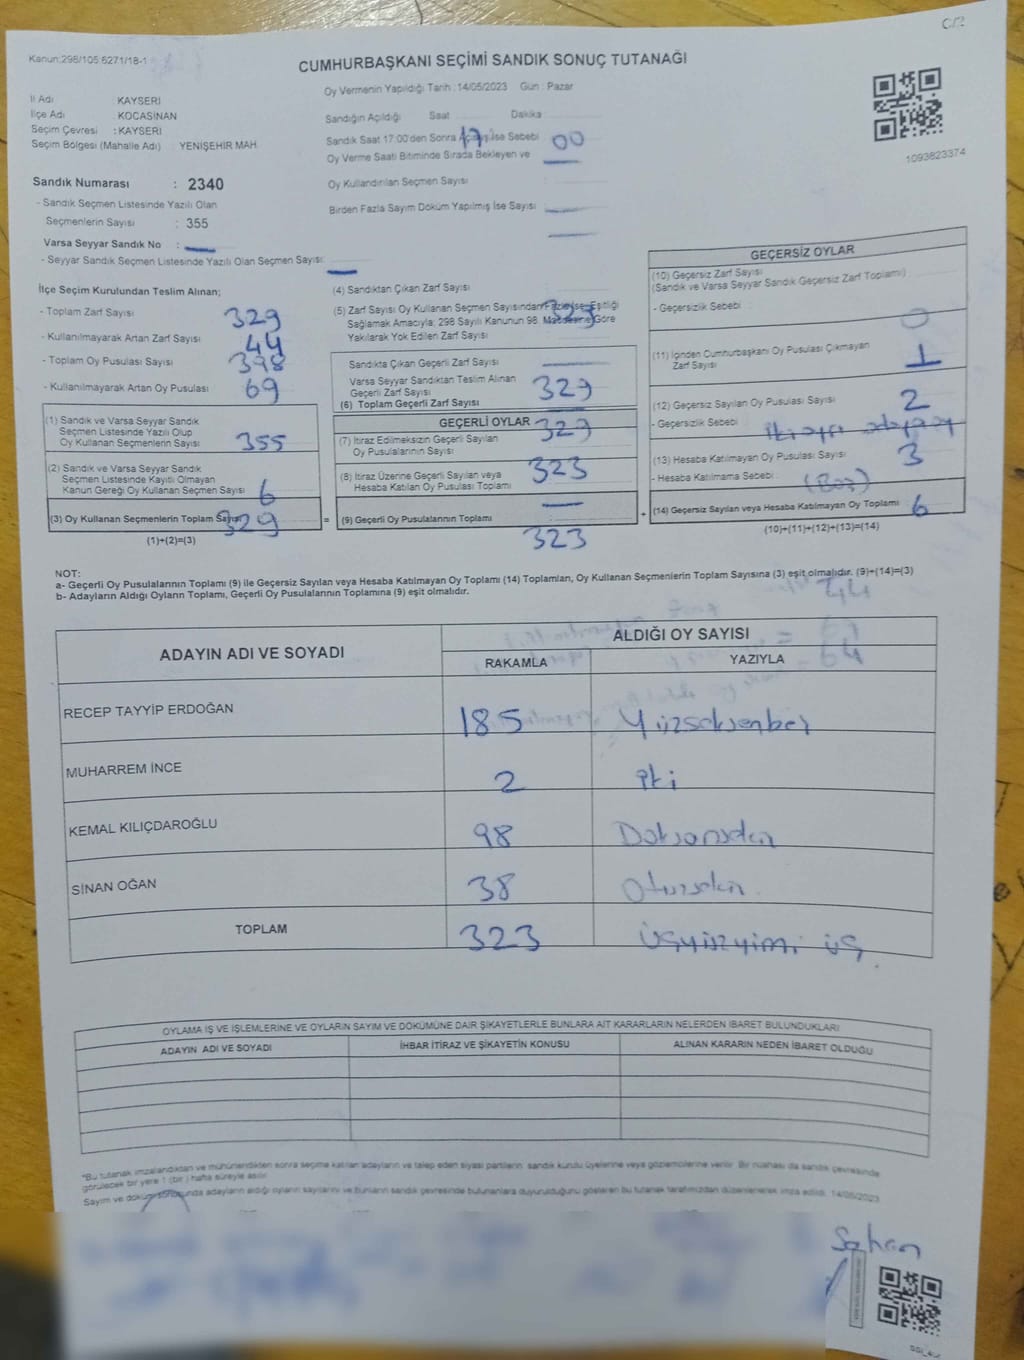 C/2
Kanun:298/105 6271/18-1
CUMHURBAŞKANI SEÇİMİ SANDIK SONUÇ TUTANAĞI
Oy Vermenin Yapıldığı Tarih : 14/05/2023 Gün : Pazar
İl Adı : KAYSERİ
İlçe Adı : KOCASİNAN
Seçim Çevresi : KAYSERİ
Seçim Bölgesi (Mahalle Adı) YENİŞEHİR MAH.
Sandığın Açıldığı Saat Dakika
Sandık Saat 17:00'den Sonra Açılmış İse Sebebi 17 00
Oy Verme Saati Bitiminde Sırada Bekleyen ve
Oy Kullandırılan Seçmen Sayısı
Birden Fazla Sayım Döküm Yapılmış İse Sayısı
1093823374
Sandık Numarası : 2340
- Sandık Seçmen Listesinde Yazılı Olan
Seçmenlerin Sayısı : 355
Varsa Seyyar Sandık No :
- Seyyar Sandık Seçmen Listesinde Yazılı Olan Seçmen Sayısı:
İlçe Seçim Kurulundan Teslim Alınan;
- Toplam Zarf Sayısı 329
- Kullanılmayarak Artan Zarf Sayısı 44
- Toplam Oy Pusulası Sayısı 398
- Kullanılmayarak Artan Oy Pusulası 69
(1) Sandık ve Varsa Seyyar Sandık
Seçmen Listesinde Yazılı Olup
Oy Kullanan Seçmenlerin Sayısı 355
(2) Sandık ve Varsa Seyyar Sandık
Seçmen Listesinde Kayıtlı Olmayan
Kanun Gereği Oy Kullanan Seçmen Sayısı 6
(3) Oy Kullanan Seçmenlerin Toplam Sayısı 329
(1)+(2)=(3)
(4) Sandıktan Çıkan Zarf Sayısı 329
(5) Zarf Sayısı Oy Kullanan Seçmen Sayısından Fazla İse, Eşitliği
Sağlamak Amacıyla, 298 Sayılı Kanunun 98. Maddesine Göre
Yakılarak Yok Edilen Zarf Sayısı
Sandıkta Çıkan Geçerli Zarf Sayısı
Varsa Seyyar Sandıktan Teslim Alınan
Geçerli Zarf Sayısı
(6) Toplam Geçerli Zarf Sayısı 329
GEÇERLİ OYLAR 329
(7) İtiraz Edilmeksizin Geçerli Sayılan
Oy Pusulalarının Sayısı 323
(8) İtiraz Üzerine Geçerli Sayılan veya
Hesaba Katılan Oy Pusulası Toplamı
= (9) Geçerli Oy Pusulalarının Toplamı 323
GEÇERSİZ OYLAR
(10) Geçersiz Zarf Sayısı
(Sandık ve Varsa Seyyar Sandık Geçersiz Zarf Toplamı)
- Geçersizlik Sebebi 0
(11) İçinden Cumhurbaşkanı Oy Pusulası Çıkmayan
Zarf Sayısı 1
(12) Geçersiz Sayılan Oy Pusulası Sayısı 2
- Geçersizlik Sebebi iki ayrı
(13) Hesaba Katılmayan Oy Pusulası Sayısı 3
- Hesaba Katılmama Sebebi : (Boş)
+ (14) Geçersiz Sayılan veya Hesaba Katılmayan Oy Toplamı 6
(10)+(11)+(12)+(13)=(14)
NOT:
a- Geçerli Oy Pusulalarının Toplamı (9) ile Geçersiz Sayılan veya Hesaba Katılmayan Oy Toplamı (14) Toplamları, Oy Kullanan Seçmenlerin Toplam Sayısına (3) eşit olmalıdır. (9)+(14)=(3)
b- Adayların Aldığı Oyların Toplamı, Geçerli Oy Pusulalarının Toplamına (9) eşit olmalıdır.
ADAYIN ADI VE SOYADI ALDIĞI OY SAYISI
RAKAMLA YAZIYLA
RECEP TAYYİP ERDOĞAN 185 Yüzseksenbeş
MUHARREM İNCE 2 iki
KEMAL KILIÇDAROĞLU 98 Doksansekiz
SİNAN OĞAN 38 Otuzsekiz
TOPLAM 323 Üçyüzyirmi üç
OYLAMA İŞ VE İŞLEMLERİNE VE OYLARIN SAYIM VE DÖKÜMÜNE DAİR ŞİKAYETLERLE BUNLARA AİT KARARLARIN NELERDEN İBARET BULUNDUKLARI
ADAYIN ADI VE SOYADI İHBAR İTİRAZ VE ŞİKAYETİN KONUSU ALINAN KARARIN NEDEN İBARET OLDUĞU
*Bu tutanak imzalandıktan ve mühürlendikten sonra seçime katılan adayların ve talep eden siyasi partilerin sandık kurulu üyelerine veya gözlemcilerine verilir. Bir nüshası da sandık çevresinde
görülecek bir yere 1 (bir) hafta süreyle asılır.
Sayım ve döküm sonucunda adayların aldığı oyların sayılarını ve bunların sandık çevresinde bulunanlara duyurulduğunu gösteren bu tutanak tarafımızdan düzenlenerek imza edildi. 14/05/2023